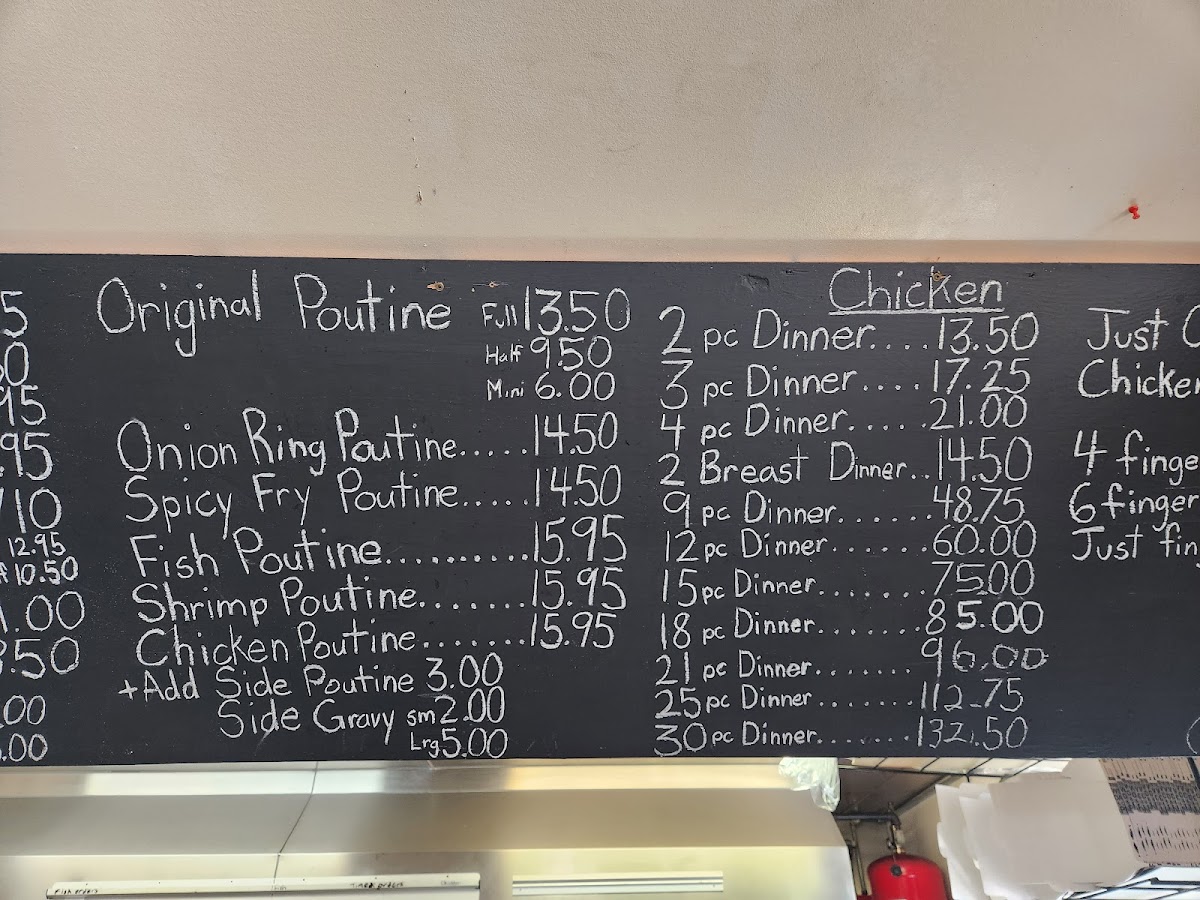 5
0
95
.95
10
12.95
10.50
.00
.50
.00
.00
Original Poutine Full 13.50
Half 9.50
Mini 6.00
Onion Ring Poutine.....14.50
Spicy Fry Poutine.....14.50
Fish Poutine..........15.95
Shrimp Poutine.......15.95
Chicken Poutine.......15.95
+Add Side Poutine 3.00
Side Gravy sm 2.00
Lrg 5.00
Chicken
2 pc Dinner....13.50
3 pc Dinner....17.25
4 pc Dinner.....21.00
2 Breast Dinner..14.50
9 pc Dinner......48.75
12 pc Dinner......60.00
15 pc Dinner.......75.00
18 pc Dinner.......85.00
21 pc Dinner.......96.00
25 pc Dinner.......112.75
30 pc Dinner.......132.50
Just
Chicken
4 finge
6 finger
Just fin